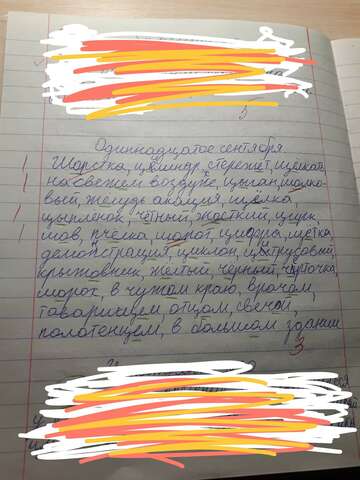 5
Одиннадцатое сентября.
цилиндр, стережёт,
на свежем воздухе, цыган, шолко-
вый, жёлудь, акация, щёлка,
цыплёнок, чётный, жосткий, цирк,
шов, пчёлка, цифра, щётка
демонстрация, циклон, цытрусовый,
крыжовник, жёлтый, чёрный, чёрточка,
шорох, в чужом краю, врачом,
товарищем, отцом, свечой,
полотенцем, в большом здании
3